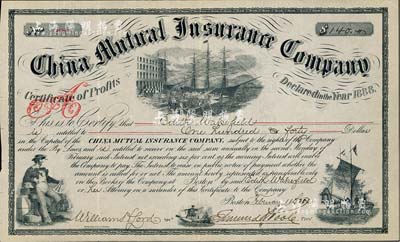 $140.00
China Mutual Insurance Company
Certificate of Profits
Declared in the Year 1888.
This is to Certify that Edith Wakefield
is entitled to One Hundred & forty Dollars
in the Capital of the CHINA MUTUAL INSURANCE COMPANY, subject to the rights of the Company
under the By Laws and is entitled to receive on the said sum annually on the second Monday of
February such Interest not exceeding six per cent as the earnings Interest will enable
the Company to pay. The Interest to cease on public notice of payment whether the
amount is called for or not. The amount hereby represented is transferable only
on the Books of the Company at Boston by said Edith Wakefield
her Attorney on a surrender of this Certificate to the Company
Boston February
William H Lord